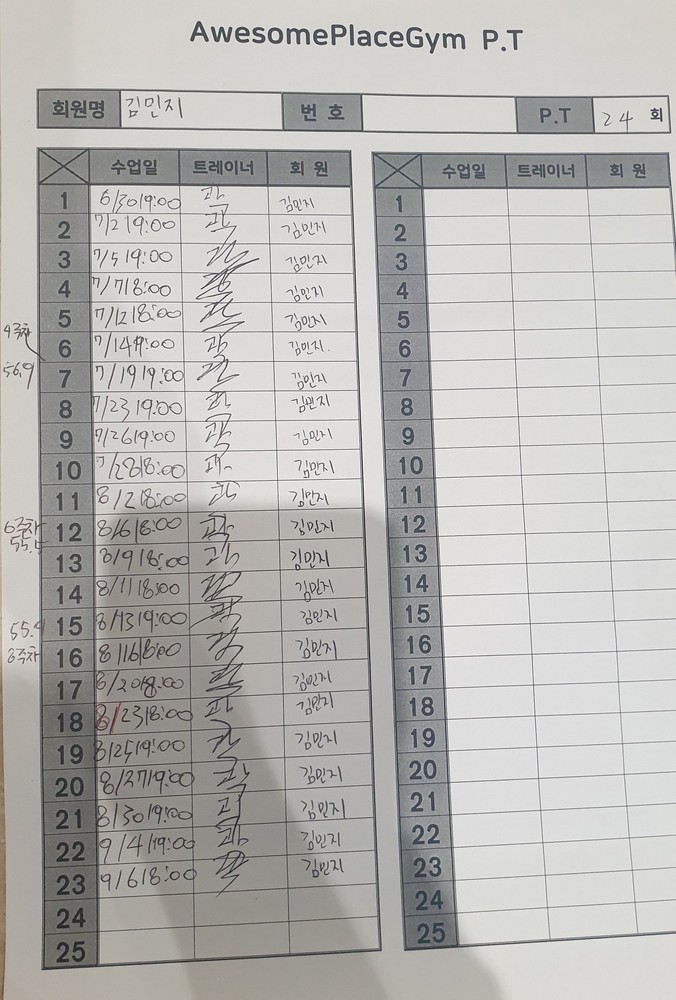 AwesomePlaceGym P.T
회원명 김민지 번 호 P.T 24 회
수업일 트레이너 회 원 수업일 트레이너 회 원
1 6/30 19:00 김민지 1
2 7/2 19:00 김민지 2
3 7/5 19:00 김민지 3
4 7/7 18:00 김민지 4
5 7/12 18:00 김민지 5
4주차
6 7/14 19:00 김민지. 6
56.9
7 7/19 19:00 김민지 7
8 7/23 19:00 김민지 8
9 7/26 19:00 김민지 9
10 7/28 18:00 김민지 10
11 8/2 18:00 김민지 11
6주차
12 8/6 18:00 김민지 12
55.5
13 8/9 18:00 김민지 13
14 8/11 18:00 김민지 14
55.4
15 8/13 19:00 김민지 15
8주차
16 8/16 18:00 김민지 16
17 8/20 18:00 김민지 17
18 8/23 18:00 김민지 18
19 8/25 19:00 김민지 19
20 8/27 19:00 김민지 20
21 8/30 19:00 김민지 21
22 9/4 19:00 김민지 22
23 9/6 18:00 김민지 23
24 24
25 25